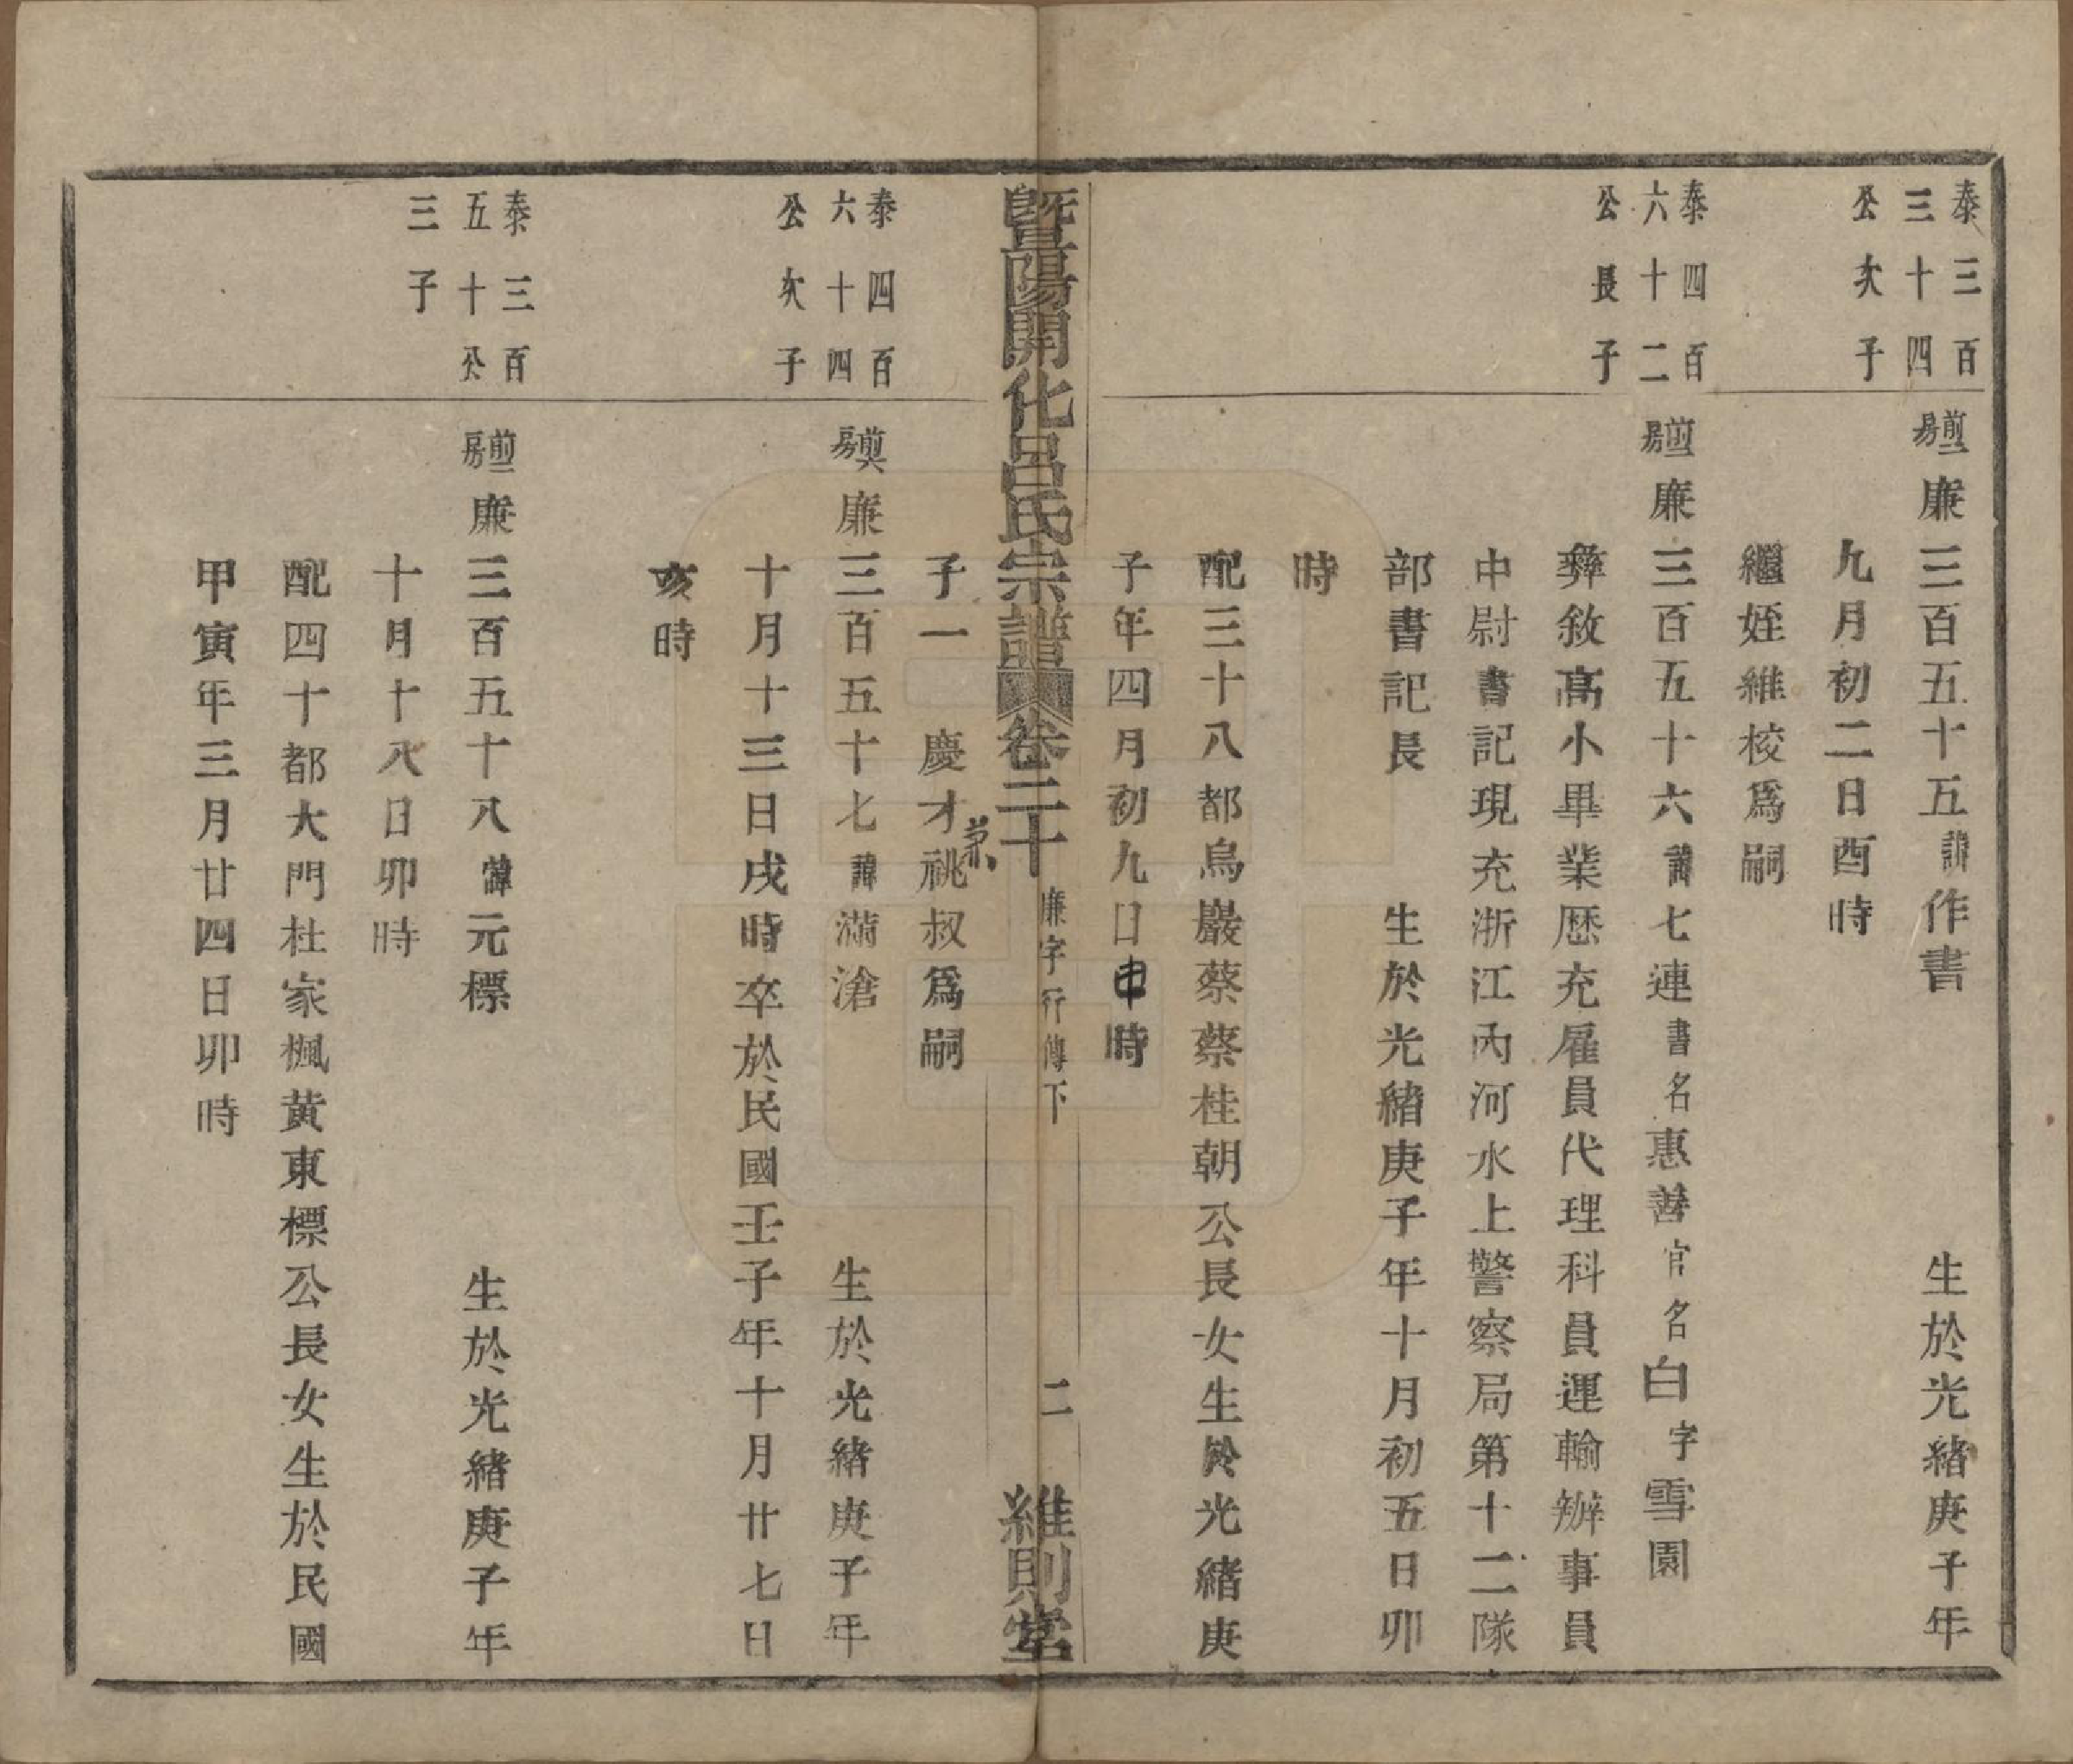 泰三百
三十四
公次子
煎二房廉三百五十五諱作書 生於光緒庚子年
九月初二日酉時
繼姪維校爲嗣
泰四百
六十二
公長子
煎一房廉三百五十六諱七連書名惠善官名白字雪園
彝敘高小畢業歷充雇員代理科員運輸辦事員
中尉書記現充浙江內河水上警察局第十二隊
部書記長 生於光緒庚子年十月初五日卯
時
配三十八都烏巖蔡蔡桂朝公長女生於光緒庚
子年四月初九日申時
暨陽開化呂氏宗譜 卷二十 廉字行傳下 二 維則堂
子一 慶才兼祧叔爲嗣
泰四百
六十四
公次子
煎房廉三百五十七諱滿滄 生於光緒庚子年
十月十三日戌時卒於民國壬子年十月廿七日
亥時
泰三百
五十公
三子
煎一房廉三百五十八諱元標 生於光緒庚子年
十月十八日卯時
配四十都大門杜家楓黃東標公長女生於民國
甲寅年三月廿四日卯時